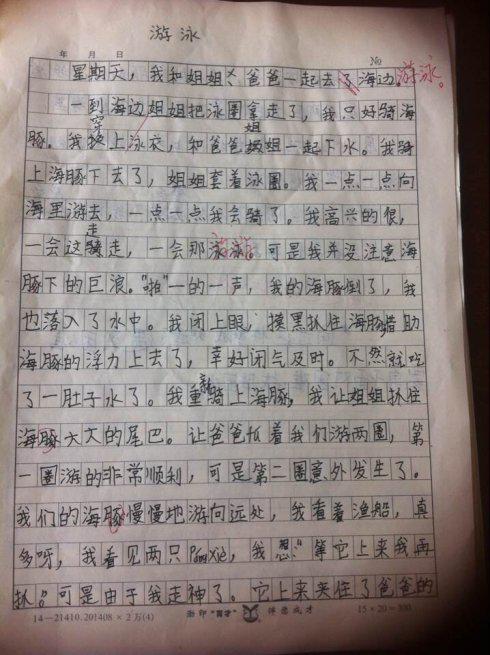 游泳
年 月 日 No
星期天，我和姐姐、爸爸一起去了海边游泳。
一到海边姐姐把泳圈拿走了，我只好骑海
豚。我穿上泳衣，和爸爸姐姐一起下水。我骑
上海豚下去了，姐姐套着泳圈。我一点一点向
海里游去，一点一点我会骑了。我高兴的很，
一会这走走，一会那游游。可是我并没注意海
豚下的巨浪。"啪"一的一声，我的海豚倒了，我
也落入了水中。我闭上眼，摸黑抓住海豚借助
海豚的浮力上去了，幸好闭气及时。不然就吃
了一肚子水了。我重新骑上海豚，我让姐姐抓住
海豚大大的尾巴。让爸爸拉着我们游两圈，第
一圈游的非常顺利，可是第二圈意外发生了。
我们的海豚慢慢地游向远处，我看着渔船，真
多呀，我看见两只Pángxiè，我想："等它上来我再
抓。"可是由于我走神了。它上来夹住了爸爸的
14—21410.201408×2万(4) 浙印"育才" 伴您成才 15×20=300